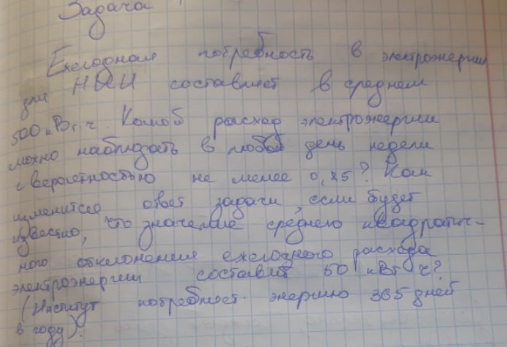 Задача
Ежедневная потребность в электроэнергии
для НИИ составляет в среднем
500 кВт.ч Какой расход электроэнергии
можно наблюдать в любой день недели
с вероятностью не менее 0,85? Как
изменится ответ задачи, если будет
известно, что значение среднего квадратич-
ного отклонения ежедневного расхода
электроэнергии составит 50 кВт ч?
(Институт потребляет энергию 365 дней
в году).